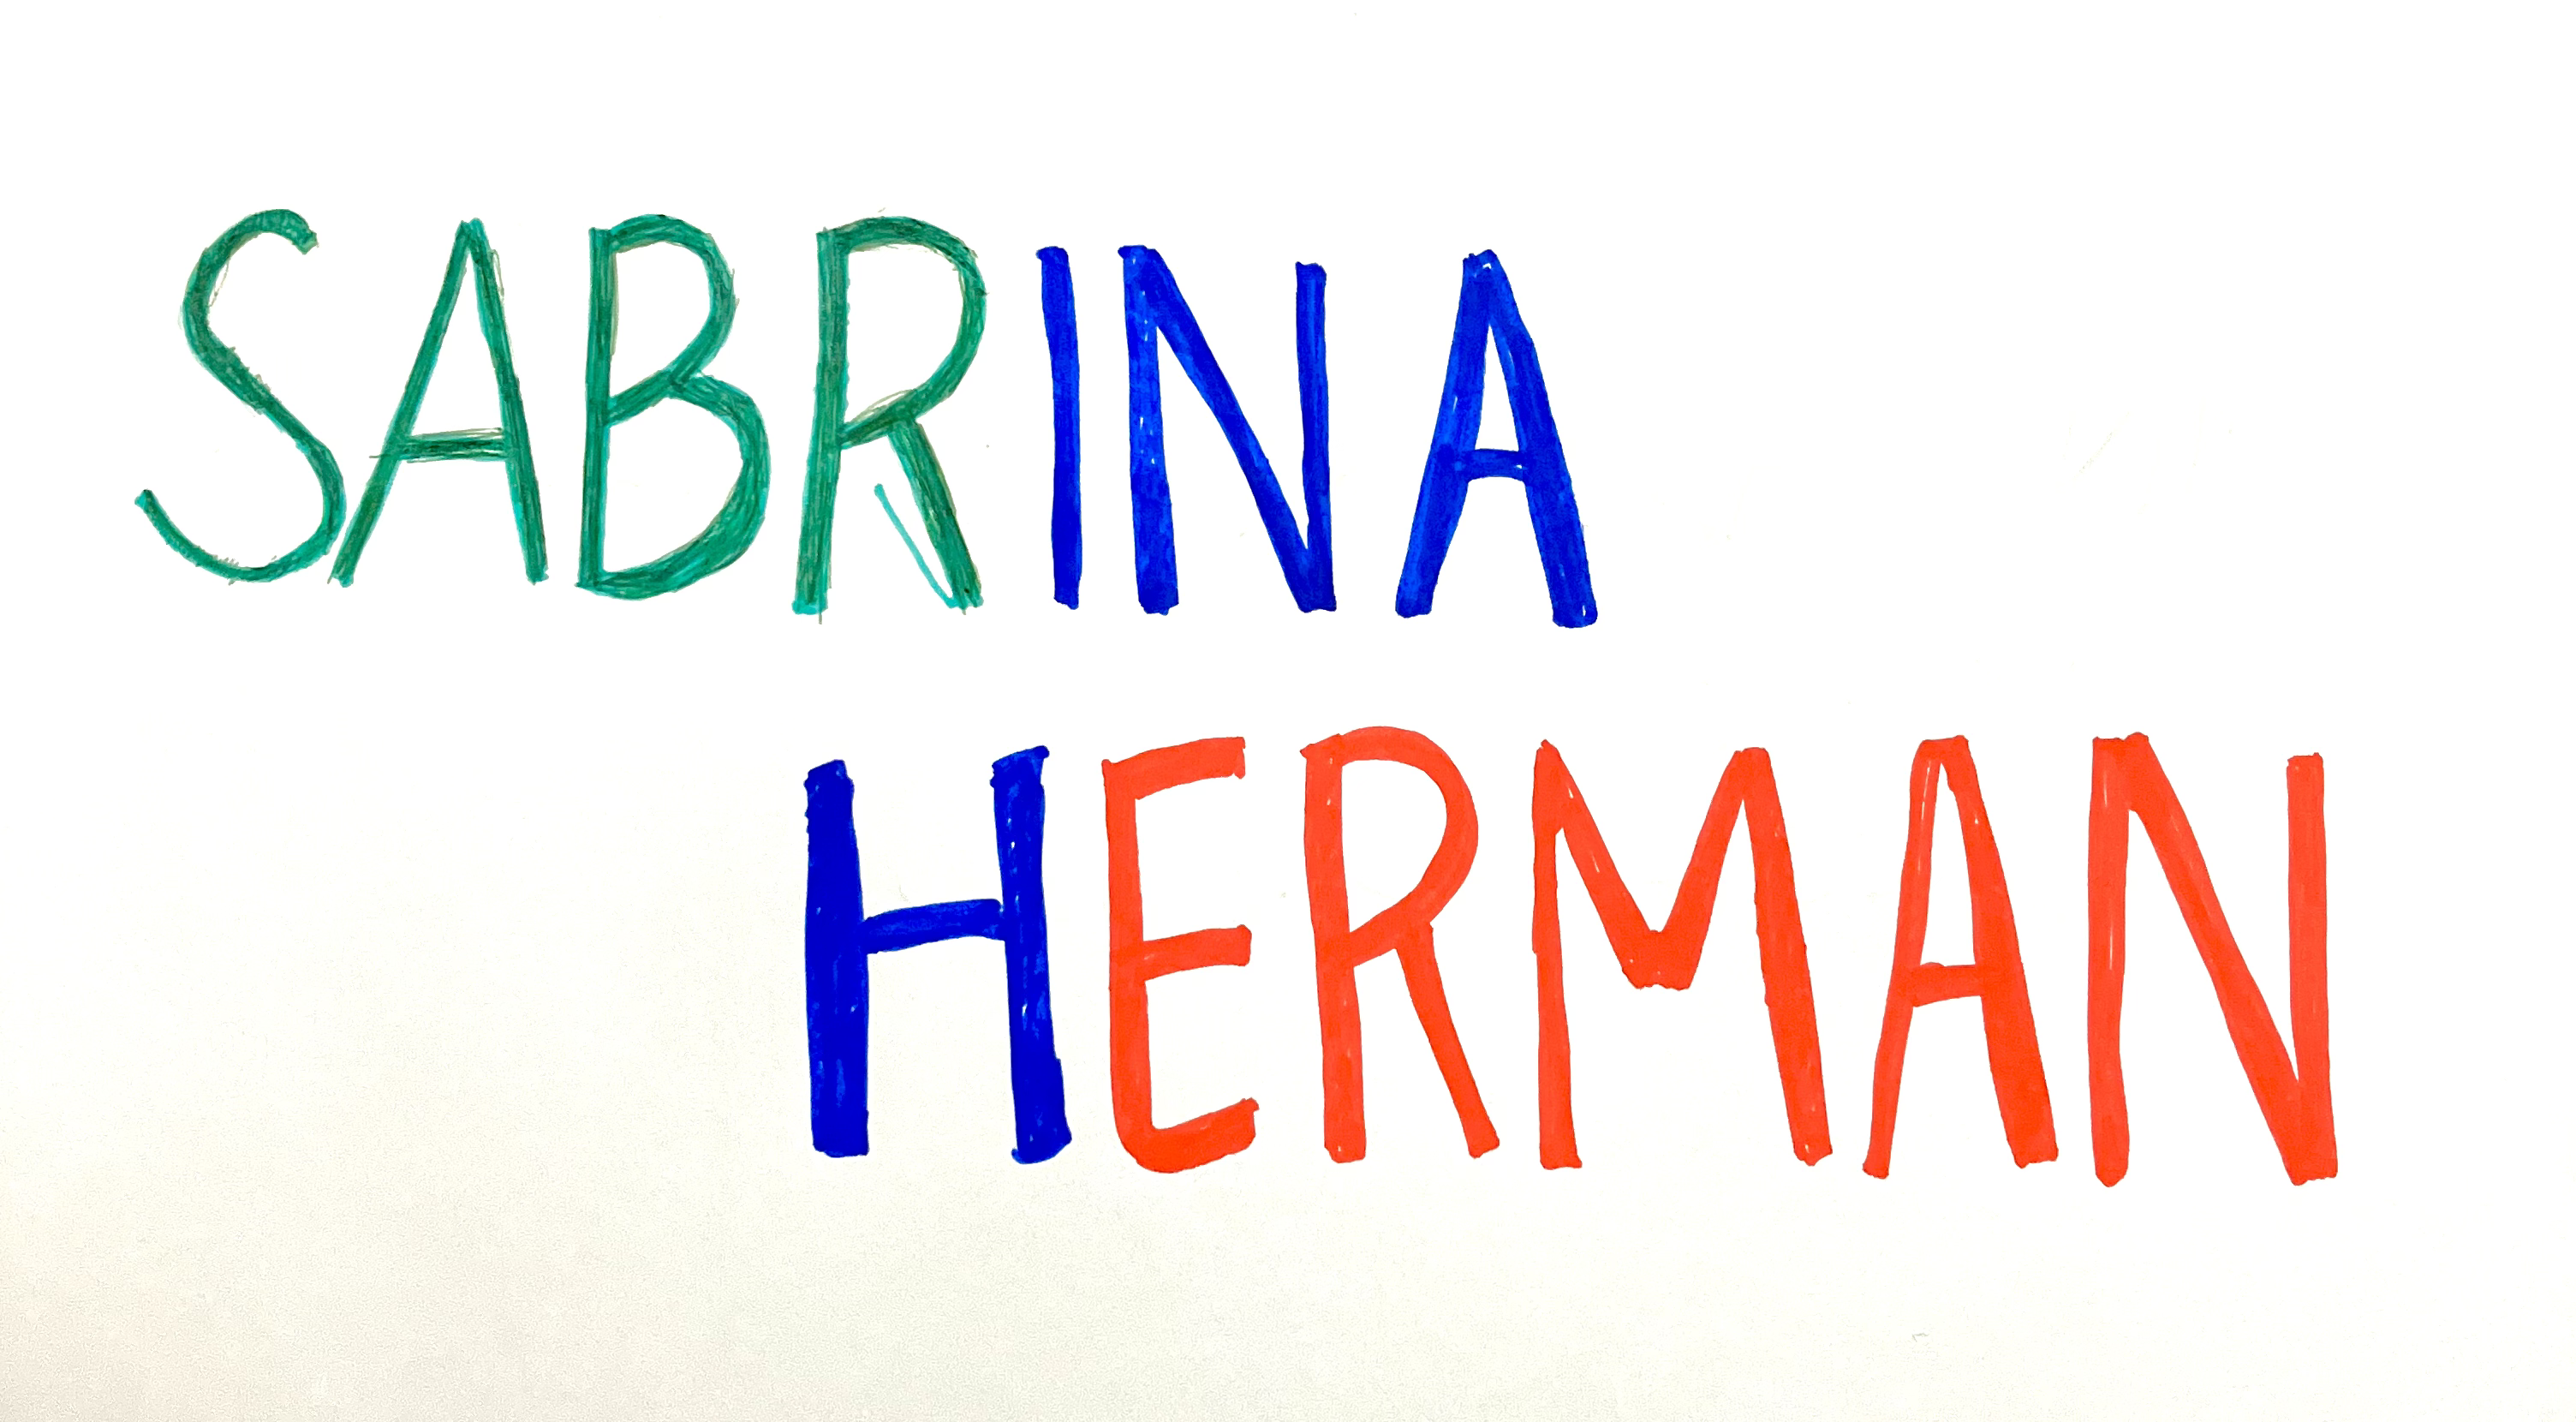 SABRINA
HERMAN